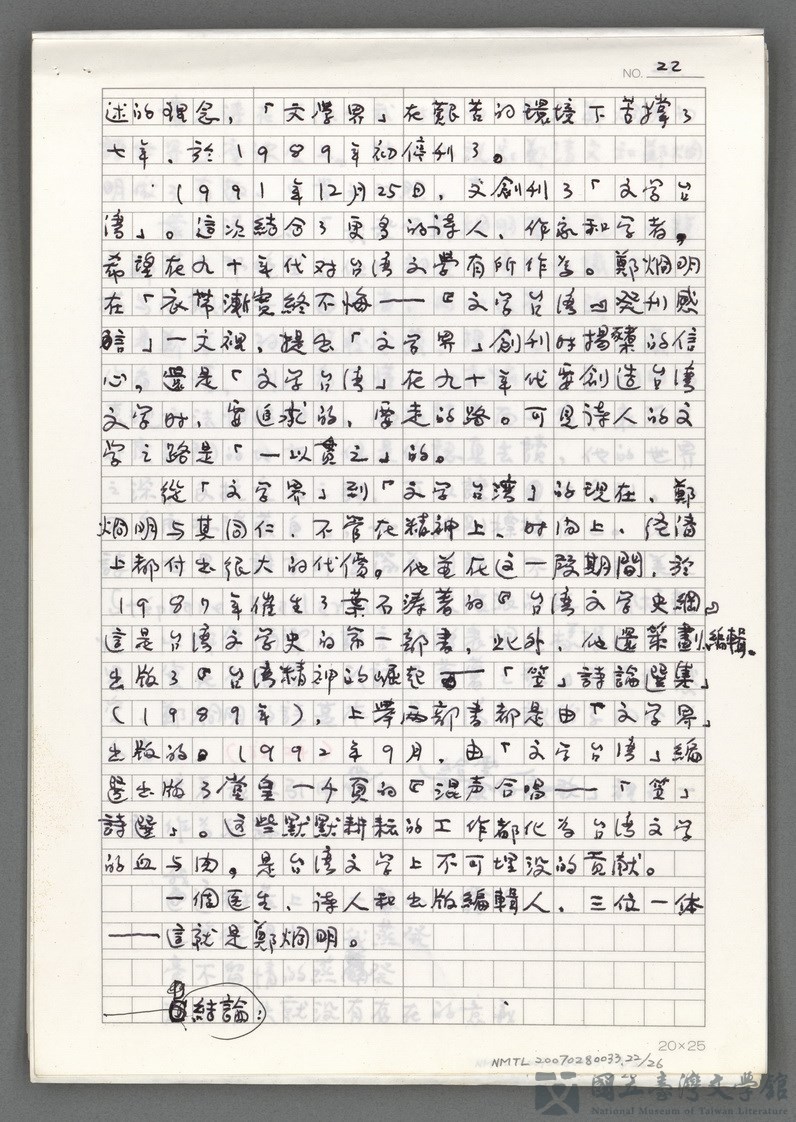 NO. 22
述的理念,「文學界」在艱苦的環境下苦撐了
七年,於1989年初停刊了。
1991年12月25日,又創刊了「文学台
湾」。這次結合了更多的詩人、作家和学者,
希望在九十年代対台湾文學有所作為。鄭烱明
在「衣帶漸寬終不悔——『文学台湾』発刊感
言」一文裡,提出「文学界」創刊時揭櫫的信
心,還是「文学台湾」在九十年代要創造台湾
文学時,要追求的,要走的路。可見詩人的文
学之路是「一以貫之」的。
從「文学界」到「文学台湾」的現在,鄭
烱明与其同仁,不管在精神上、时间上、经済
上都付出很大的代價。他並在这一段期間,於
1987年催生了葉石濤著的『台湾文学史綱』
這是台湾文学史的第一部書,此外,他還策劃編輯。
出版了『台湾精神的崛起——「笠」詩論選集』
(1989年),上舉両部書都是由「文学界」
出版的。1992年9月,由「文学台湾」編
選出版了堂皇一千頁的『混声合唱——「笠」
詩選』。这些默默耕耘的工作都化為台湾文学
的血与肉,是台湾文学上不可埋没的贡献。
一個医生、詩人和出版編輯人,三位一体
——這就是鄭烱明。
結論:
20×25
NMTL 20070280033.22/26
國立臺灣文學館
National Museum of Taiwan Literature